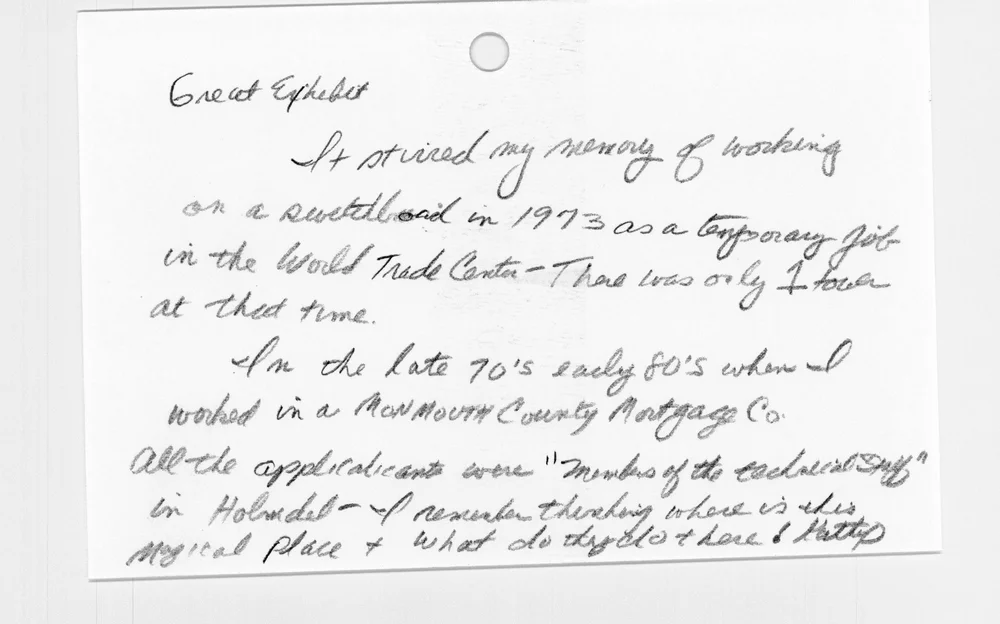 Great Exhibit
It stirred my memory of working
on a switchboard in 1973 as a temporary job
in the World Trade Center - There was only 1 tower
at that time.
In the late 70's early 80's when I
worked in a Monmouth County Mortgage Co.
All the applicalicants were "Members of the technical Staff"
in Holmdel - I remember thinking where is this
Magical Place + what do they do there!